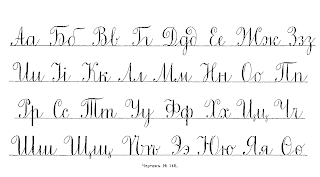 Аа Бб Вв Гг Ддд Ее Жж Ззз
Ии Іі Кк Лл Мм Нн Оо Пп
Рр Сс Ттт Уу Фф Хх Цц Чч
Шш Щщ Ээ Юю Яя Ѳѳ
Чертежъ №